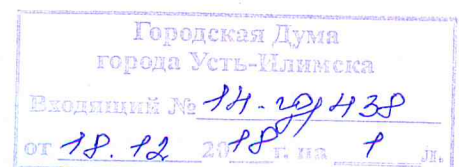 Городская Дума
города Усть-Илимска
Входящий № 14-гд/438
от 18.12 2018 г. на 1 л.